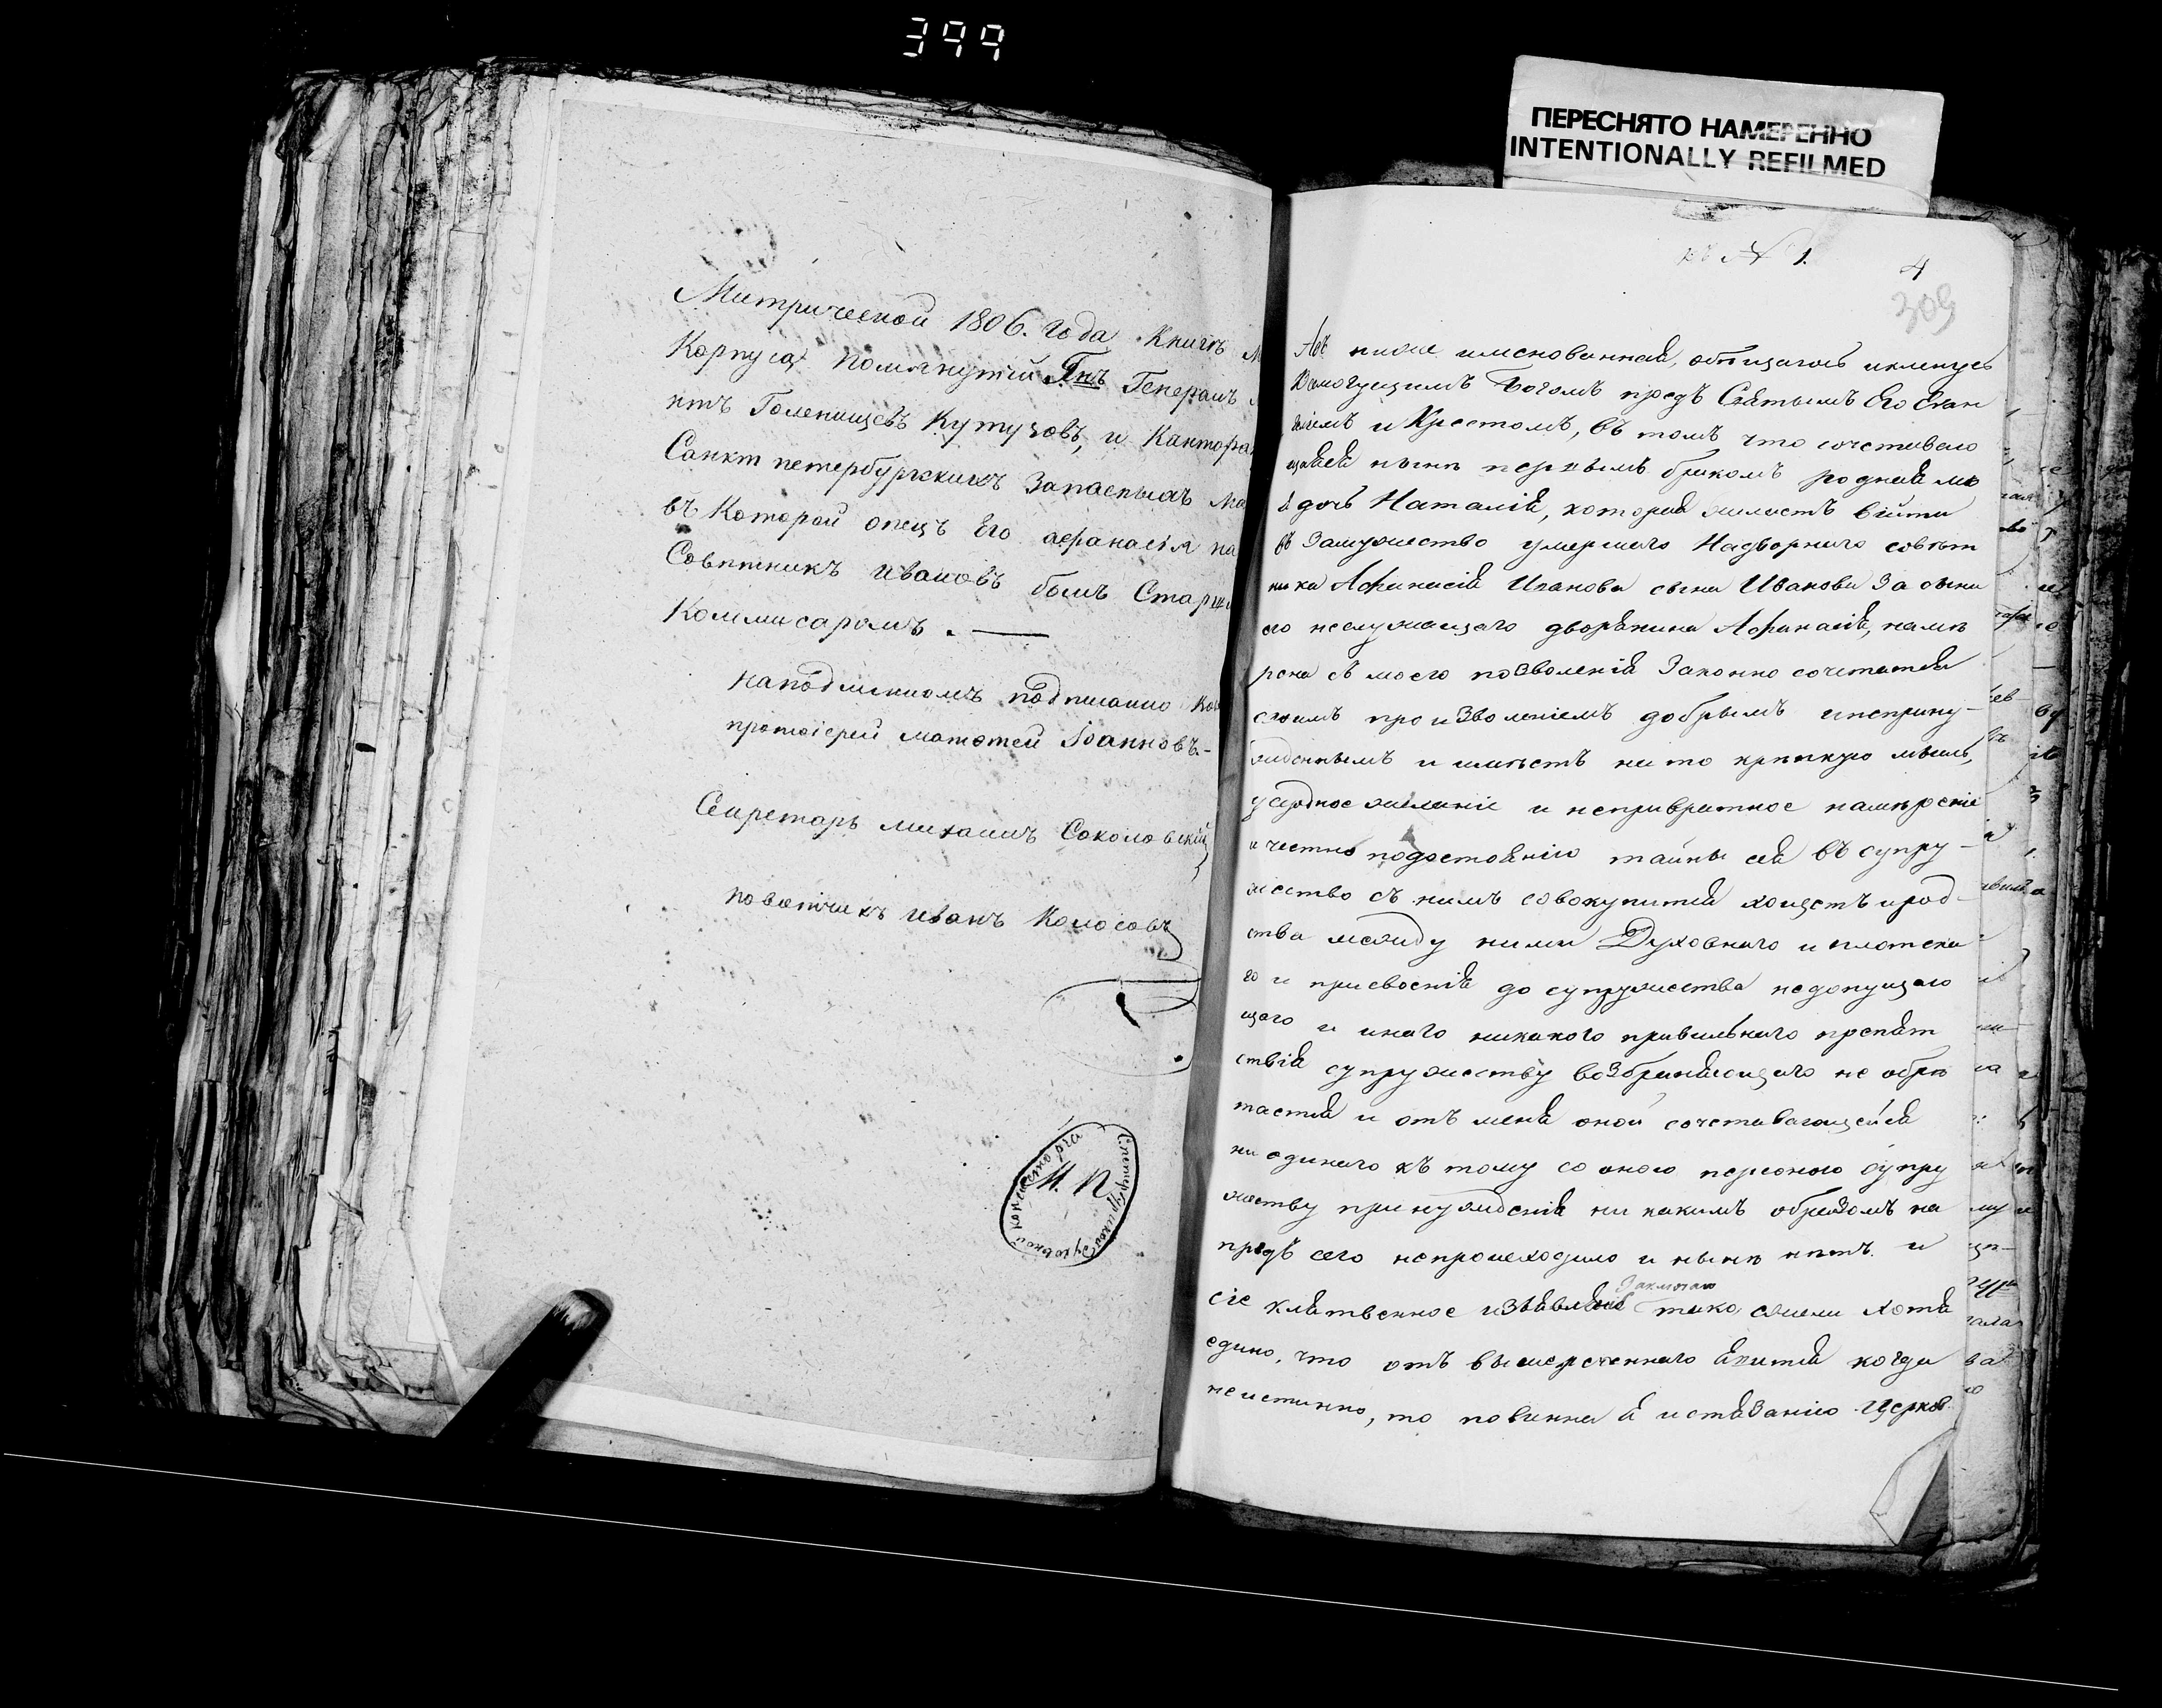 399
ПЕРЕСНЯТО НАМЕРЕННО
INTENTIONALLY REFILMED
Митрической 1806. года книгѣ
Корпуса помянутый Гнъ Генералъ
нтъ Голенищевъ Кутузовъ, и Кантора
Санкт петербургскихъ Запасныхъ Ма
въ Которой отецъ Его афанасія на
Совѣтникъ ивановъ былъ Старши
Коммисаромъ. —
на подлинномъ подписано
протоіерей матфей Іоанновъ-
Секретарь михаилъ Соколовскій
повытчикъ иванъ Колосовъ
С: петербургской духовной консисторіи
М. П.
къ № 1.
4
309
Азъ ниже имянованная, обѣщаюсь и кленусь
Всемогущимъ Богомъ предъ Святымъ Его Еван
геліемъ и Крестомъ, въ томъ что сочетаваю
щаяся нынѣ первымъ бракомъ родная мо
я дочь Наталія, которая желаетъ вѣйти
въ Замужество умершаго Надворнаго совѣт
ника Афанасія Иванова сына Иванова За сына
его неслужащаго дворянина Афанасія, намѣ
рена съ моего позволенія Законно сочетатся
своимъ произволеніемъ добрымъ и неприну-
жденнымъ и имѣетъ на то крѣпкую мысль,
усердное желаніе и непривратное намѣреніе
и честно по достоянію тайны сея въ супру-
жество съ нимъ совокупится хощетъ и род-
ства между ними Духовнаго и плотска
го и присвоенія до супружества недопущаю
щаго и инаго никакого правильнаго препят
ствія супружеству возбраняющаго не обрѣ
тается и отъ меня оной сочетавающейся
ни единаго къ тому со оною персоною супру
жеству принужденія ни какимъ образомъ на
предъ сего непроисходило и нынѣ нѣтъ. и
сіе клятвенное изъявленіе тако
Заключаю
ежели хотя
едино, что отъ вышереченнаго явится когда
неистинно, то повинна я истязанію Церков